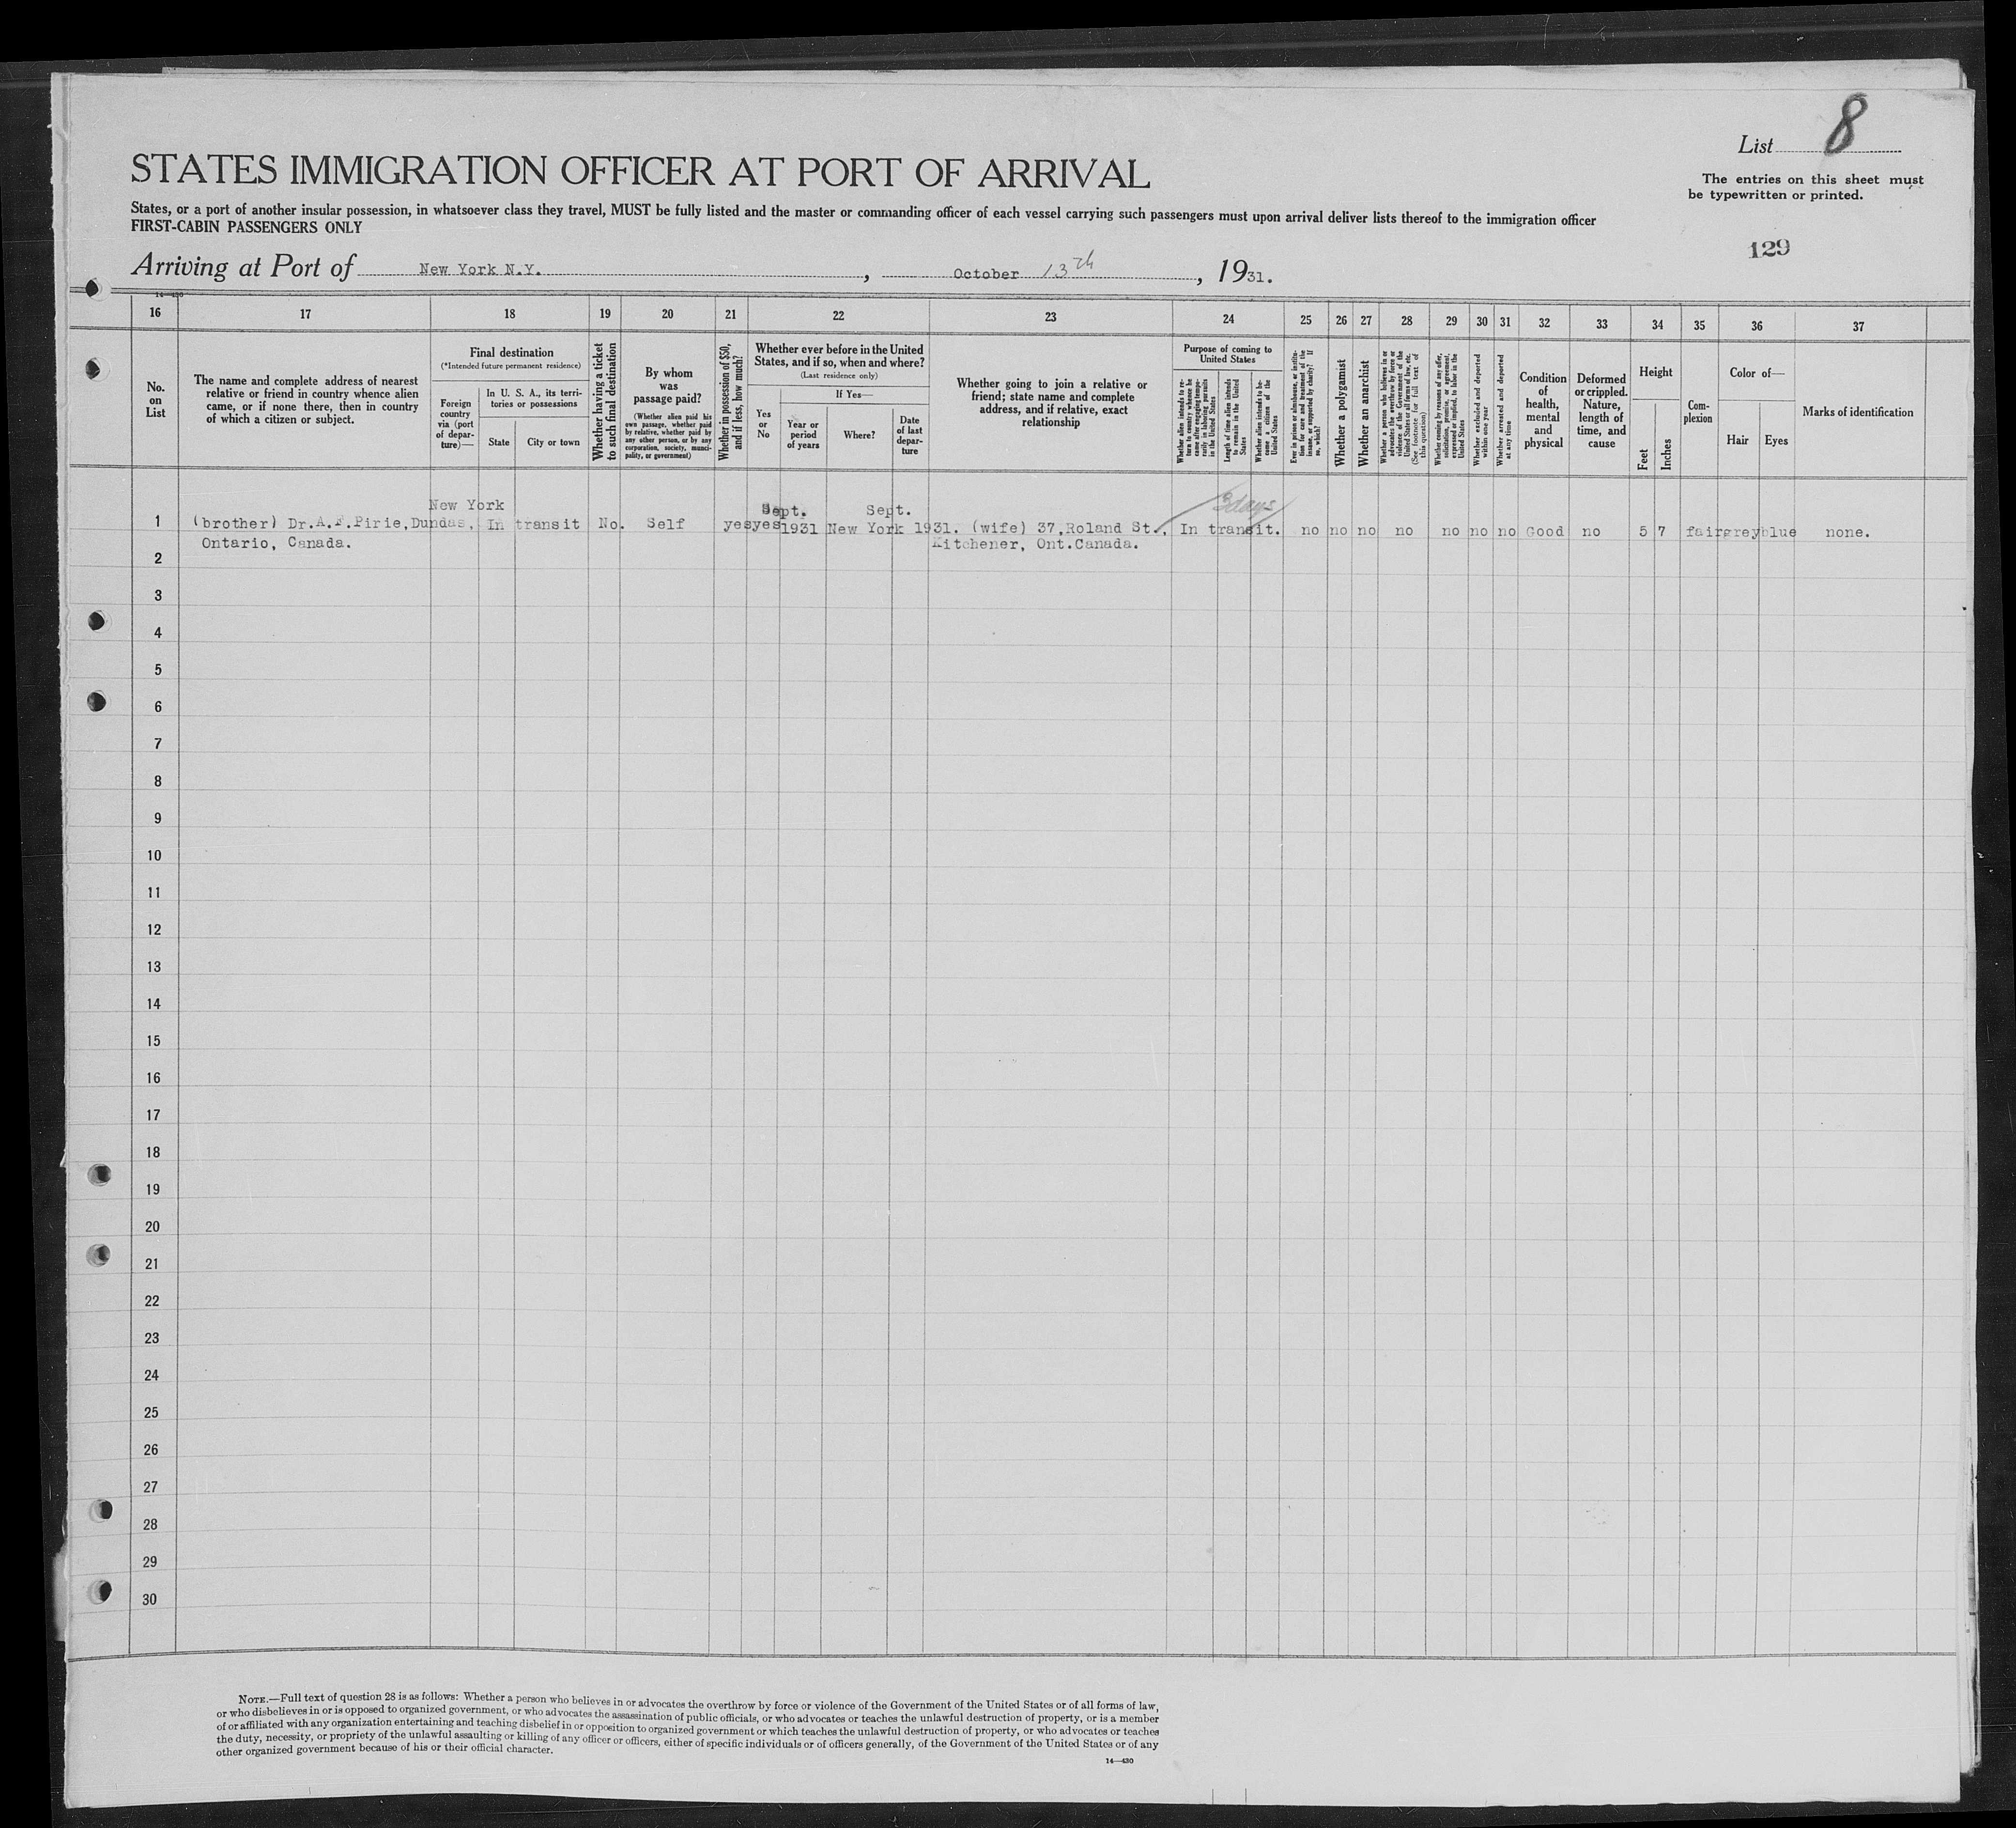 List 8
STATES IMMIGRATION OFFICER AT PORT OF ARRIVAL
The entries on this sheet must
be typewritten or printed.
States, or a port of another insular possession, in whatsoever class they travel, MUST be fully listed and the master or commanding officer of each vessel carrying such passengers must upon arrival deliver lists thereof to the immigration officer
FIRST-CABIN PASSENGERS ONLY
129
Arriving at Port of New York N.Y. , October 13th , 1931.
14—430
16 17 18 19 20 21 22 23 24 25 26 27 28 29 30 31 32 33 34 35 36 37
No.
on
List
The name and complete address of nearest
relative or friend in country whence alien
came, or if none there, then in country
of which a citizen or subject.
Final destination
(*Intended future permanent residence)
Foreign
country
via (port
of depar-
ture)—
In U. S. A., its terri-
tories or possessions
State
City or town
Whether having a ticket
to such final destination
By whom
was
passage paid?
(Whether alien paid his
own passage, whether paid
by relative, whether paid by
any other person, or by any
corporation, society, munici-
pality, or government)
Whether in possession of $50,
and if less, how much?
Whether ever before in the United
States, and if so, when and where?
(Last residence only)
Yes
or
No
If Yes—
Year or
period
of years
Where?
Date
of last
depar-
ture
Whether going to join a relative or
friend; state name and complete
address, and if relative, exact
relationship
Purpose of coming to
United States
Whether alien intends to re-
turn to country whence he
came after engaging tempo-
rarily in laboring pursuits
in the United States
Length of time alien intends
to remain in the United
States
Whether alien intends to be-
come a citizen of the
United States
Ever in prison or almshouse, or institu-
tion for care and treatment of the
insane, or supported by charity? If
so, which?
Whether a polygamist
Whether an anarchist
Whether a person who believes in or
advocates the overthrow by force or
violence of the Government of the
United States or all forms of law, etc.
(See footnote for full text of
this question)
Whether coming by reasons of any offer,
solicitation, promise, or agreement,
expressed or implied, to labor in the
United States
Whether excluded and deported
within one year
Whether arrested and deported
at any time
Condition
of
health,
mental
and
physical
Deformed
or crippled.
Nature,
length of
time, and
cause
Height
Feet
Inches
Com-
plexion
Color of—
Hair
Eyes
Marks of identification
New York Sept. Sept. 3days
1 (brother) Dr.A.F.Pirie,Dundas, In transit No. Self yes yes 1931 New York 1931. (wife) 37,Roland St., In transit. no no no no no no no Good no 5 7 fair grey blue none.
Ontario, Canada. Kitchener, Ont.Canada.
2
3
4
5
6
7
8
9
10
11
12
13
14
15
16
17
18
19
20
21
22
23
24
25
26
27
28
29
30
NOTE.—Full text of question 28 is as follows: Whether a person who believes in or advocates the overthrow by force or violence of the Government of the United States or of all forms of law,
or who disbelieves in or is opposed to organized government, or who advocates the assassination of public officials, or who advocates or teaches the unlawful destruction of property, or is a member
of or affiliated with any organization entertaining and teaching disbelief in or opposition to organized government or which teaches the unlawful destruction of property, or who advocates or teaches
the duty, necessity, or propriety of the unlawful assaulting or killing of any officer or officers, either of specific individuals or of officers generally, of the Government of the United States or of any
other organized government because of his or their official character.
14—430